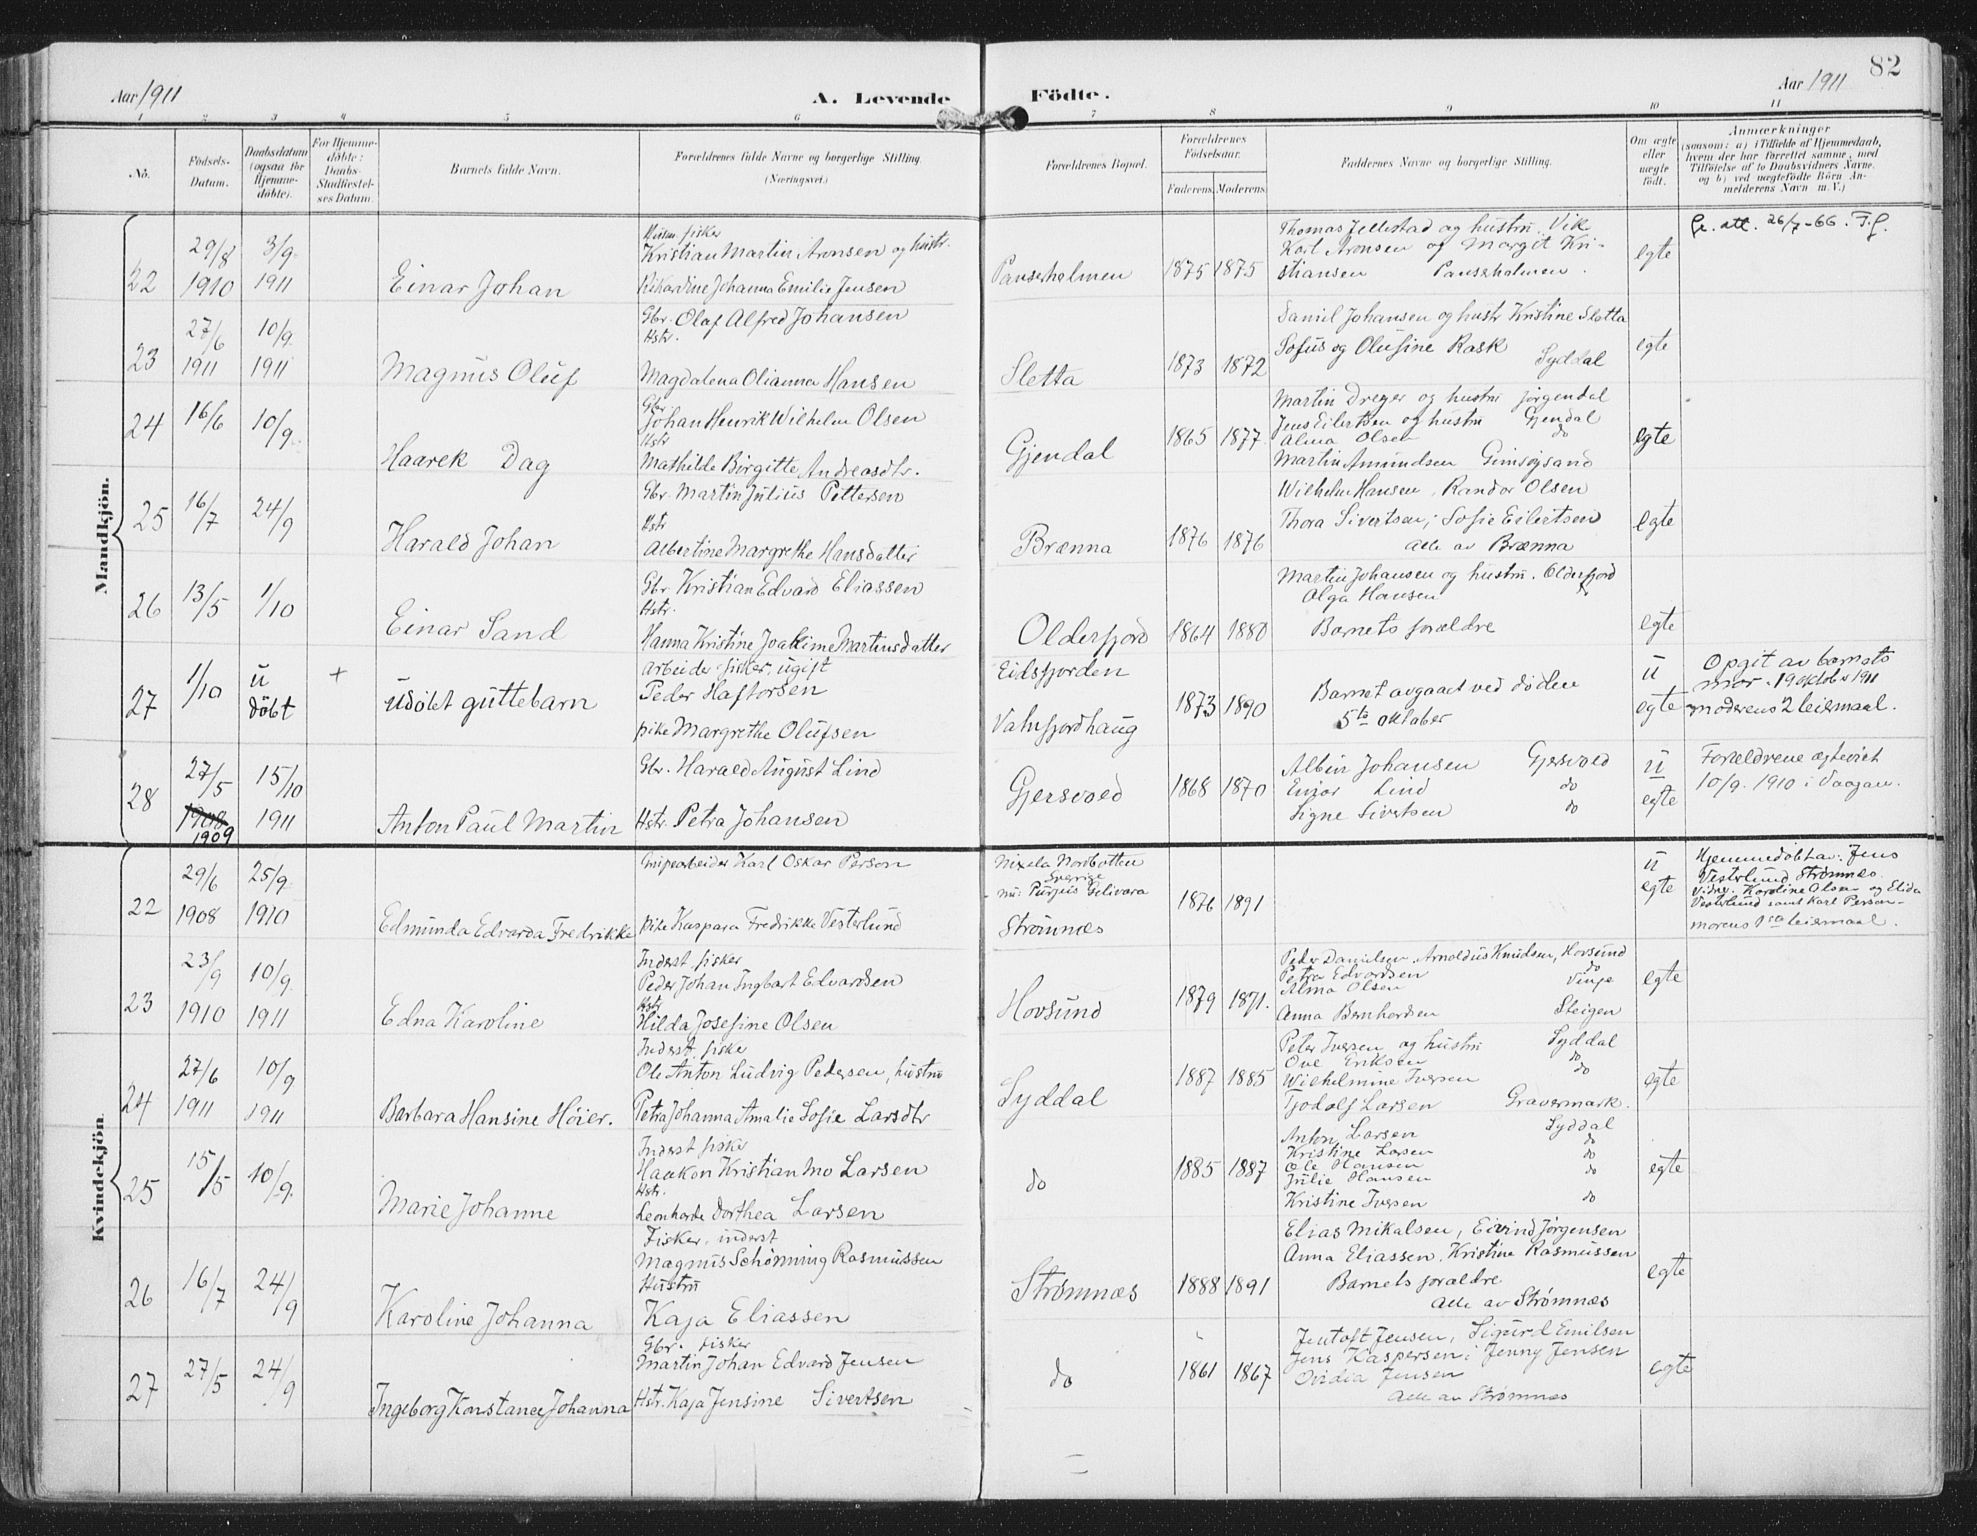 82
Aar 1911
A. Levende
Födte.
Aar 1911
1 2 3 4 5 6 7 8 9 10 11
No.
Födsels-Datum.
Daabsdatum (ogsaa for Hjemme-döbte).
For Hjemme-döbte: Daabs-Stadfæstel-ses Datum.
Barnets fulde Navn.
Forældrenes fulde Navne og borgerlige Stilling.
(Næringsvei.)
Forældrenes Bopæl.
Forældrenes Födselsaar.
Faderens. Moderens.
Faddernes Navne og borgerlige Stilling.
Om ægte eller uægte födt.
Anmærkninger
(saasom: a) i Tilfælde af Hjemmedaab, hvem der har forrettet samme, med Tilföielse af to Daabsvidners Navne, og b) ved uægtefödte Börn Anmelderens Navn m. V.)
Mandkjön.
22 29/8 1910 3/9 1911
Einar Johan
fisker
Kristian Martin Aronsen og hustr.
Rikardine Johanna Emilie Jensen
Panserholmen 1875 1875
Thomas Jellestad og hustru. Vik
Karl Aronsen og Margit Kri-
stiansen Panserholmen.
egte
26/7-66.
23 27/6 1911 10/9 1911
Magnus Oluf
Gbr. Olaf Alfred Johansen
Hstr.
Magdalena Olianna Hansen
Sletta 1873 1872
Daniel Johansen og hustr Kristine Sletta
Sofus og Olufine Rask
Syddal
egte
24 16/6 10/9
Haarek Dag
Gbr
Johan Henrik Wilhelm Olsen
Hstr
Mathilde Birgitte Andreasdtr.
Gjendal 1865 1877
Martin Dreyer og hustru Jørgendal
Jens Eilertsen og hustru Gjendal
Alma Olsen do
Martin Amundsen Gimsøysand
egte
25 16/7 24/9
Harald Johan
Gbr. Martin Julius Pettersen
Hstr
Albertine Margrethe Hansdatter
Brænna 1876 1876
Wilhelm Hansen, Randor Olsen
Thora Sivertsen, Sofie Eilertsen
alle av Brænna
egte
26 13/5 1/10
Einar Sand
Gbr Kristian Edvard Eliassen
Hstr.
Hanna Kristine Joakime Martinsdatter
Olderfjord 1864 1880
Martin Johansen og hustru. Olderfjord
Olga Hansen
Barnets forældre
egte
27 1/10 u døbt +
Udøbt guttebarn
arbeider fisker, ugift
Peder Haftorsen
pike Margrethe Olufsen
Eidsfjorden
Valnfjordhaug
1873 1890
Barnet avgaaet ved døden
5te oktober
u egte
Opgit av barnets
mor. 19 oktobr 1911
moderens 2 leiermaal.
28 27/5 1908 1909 15/10 1911
Anton Paul Martin
Gbr. Harald August Lind
Hstr. Petra Johansen
Gjersvold 1868 1870
Albin Johansen Gjersvold
Einar Lind do
Signe Sivertsen do
u egte
Forældrene egteviet
10/9. 1910 i Vaagan.
Kvindekjön
22 29/6 1908 25/9 1910
Edmunda Edvarda Fredrikke
Grupearbeider Karl Oskar Person
Pike Kaspara Fredrikke Vesterlund
Norbotten
Sverige
nu: Gelivara
Strømnæs
1876 1891
u egte
Hjemmedøbt av: Jens
Vesterlund Strømnæs.
Vidne. Karoline Olsen og Elida
Vesterlund samt Karl Person-
morens 1ste leiermaal.
23 23/9 1910 10/9 1911
Edna Karoline
Inderst. fisker
Peder Johan Ingbart Edvardsen
Hstr
Hilda Josefine Olsen
Hovsund 1879 1871.
Peder Danielsen, Arnoldus Knudsen, Hovsund
Petra Edvardsen do
Alma Olsen Vinje
Anna Bernhardsen Steigen
egte
24 27/6 1911 10/9 1911
Barbara Hansine Höier.
Inderst. fiske
Ole Anton Ludvig Pedersen, hustru
Petra Johanna Amalie Sofie Larsdtr
Syddal 1887 1885
Peter Iversen og hustru Syddal
Ove Eriksen do
Wilhelmine Iversen do
Tjodolf Larsen Gravermark.
egte
25 15/5 10/9
Marie Johanne
Inderst fiske
Haakon Kristian Mo Larsen
Hstr.
Leonharde Dorthea Larsen
do 1885 1887
Anton Larsen Syddal
Kristine Larsen do
Ole Hansen do
Julie Hansen do
Kristine Iversen do
egte
26 16/7 24/9
Karoline Johanna
Fisker, inderst
Magnus Schönning Rasmussen
Hustru
Kaja Eliassen
Strømnæs 1888 1891
Elias Mikalsen, Eivind Jørgensen
Anna Eliassen, Kristine Rasmussen
Barnets forældre
Alle av Strømnæs
egte
27 27/5 24/9
Ingeborg Konstance Johanna
Gbr. fisker
Martin Johan Edvard Jensen
Hstr. Kaja Jensine Sivertsen
do 1861 1867
Jentoft Jensen, Sigurd Emilsen
Jens Kaspersen; Jenny Jensen
Ovidia Jensen
Alle av Strømnæs
egte